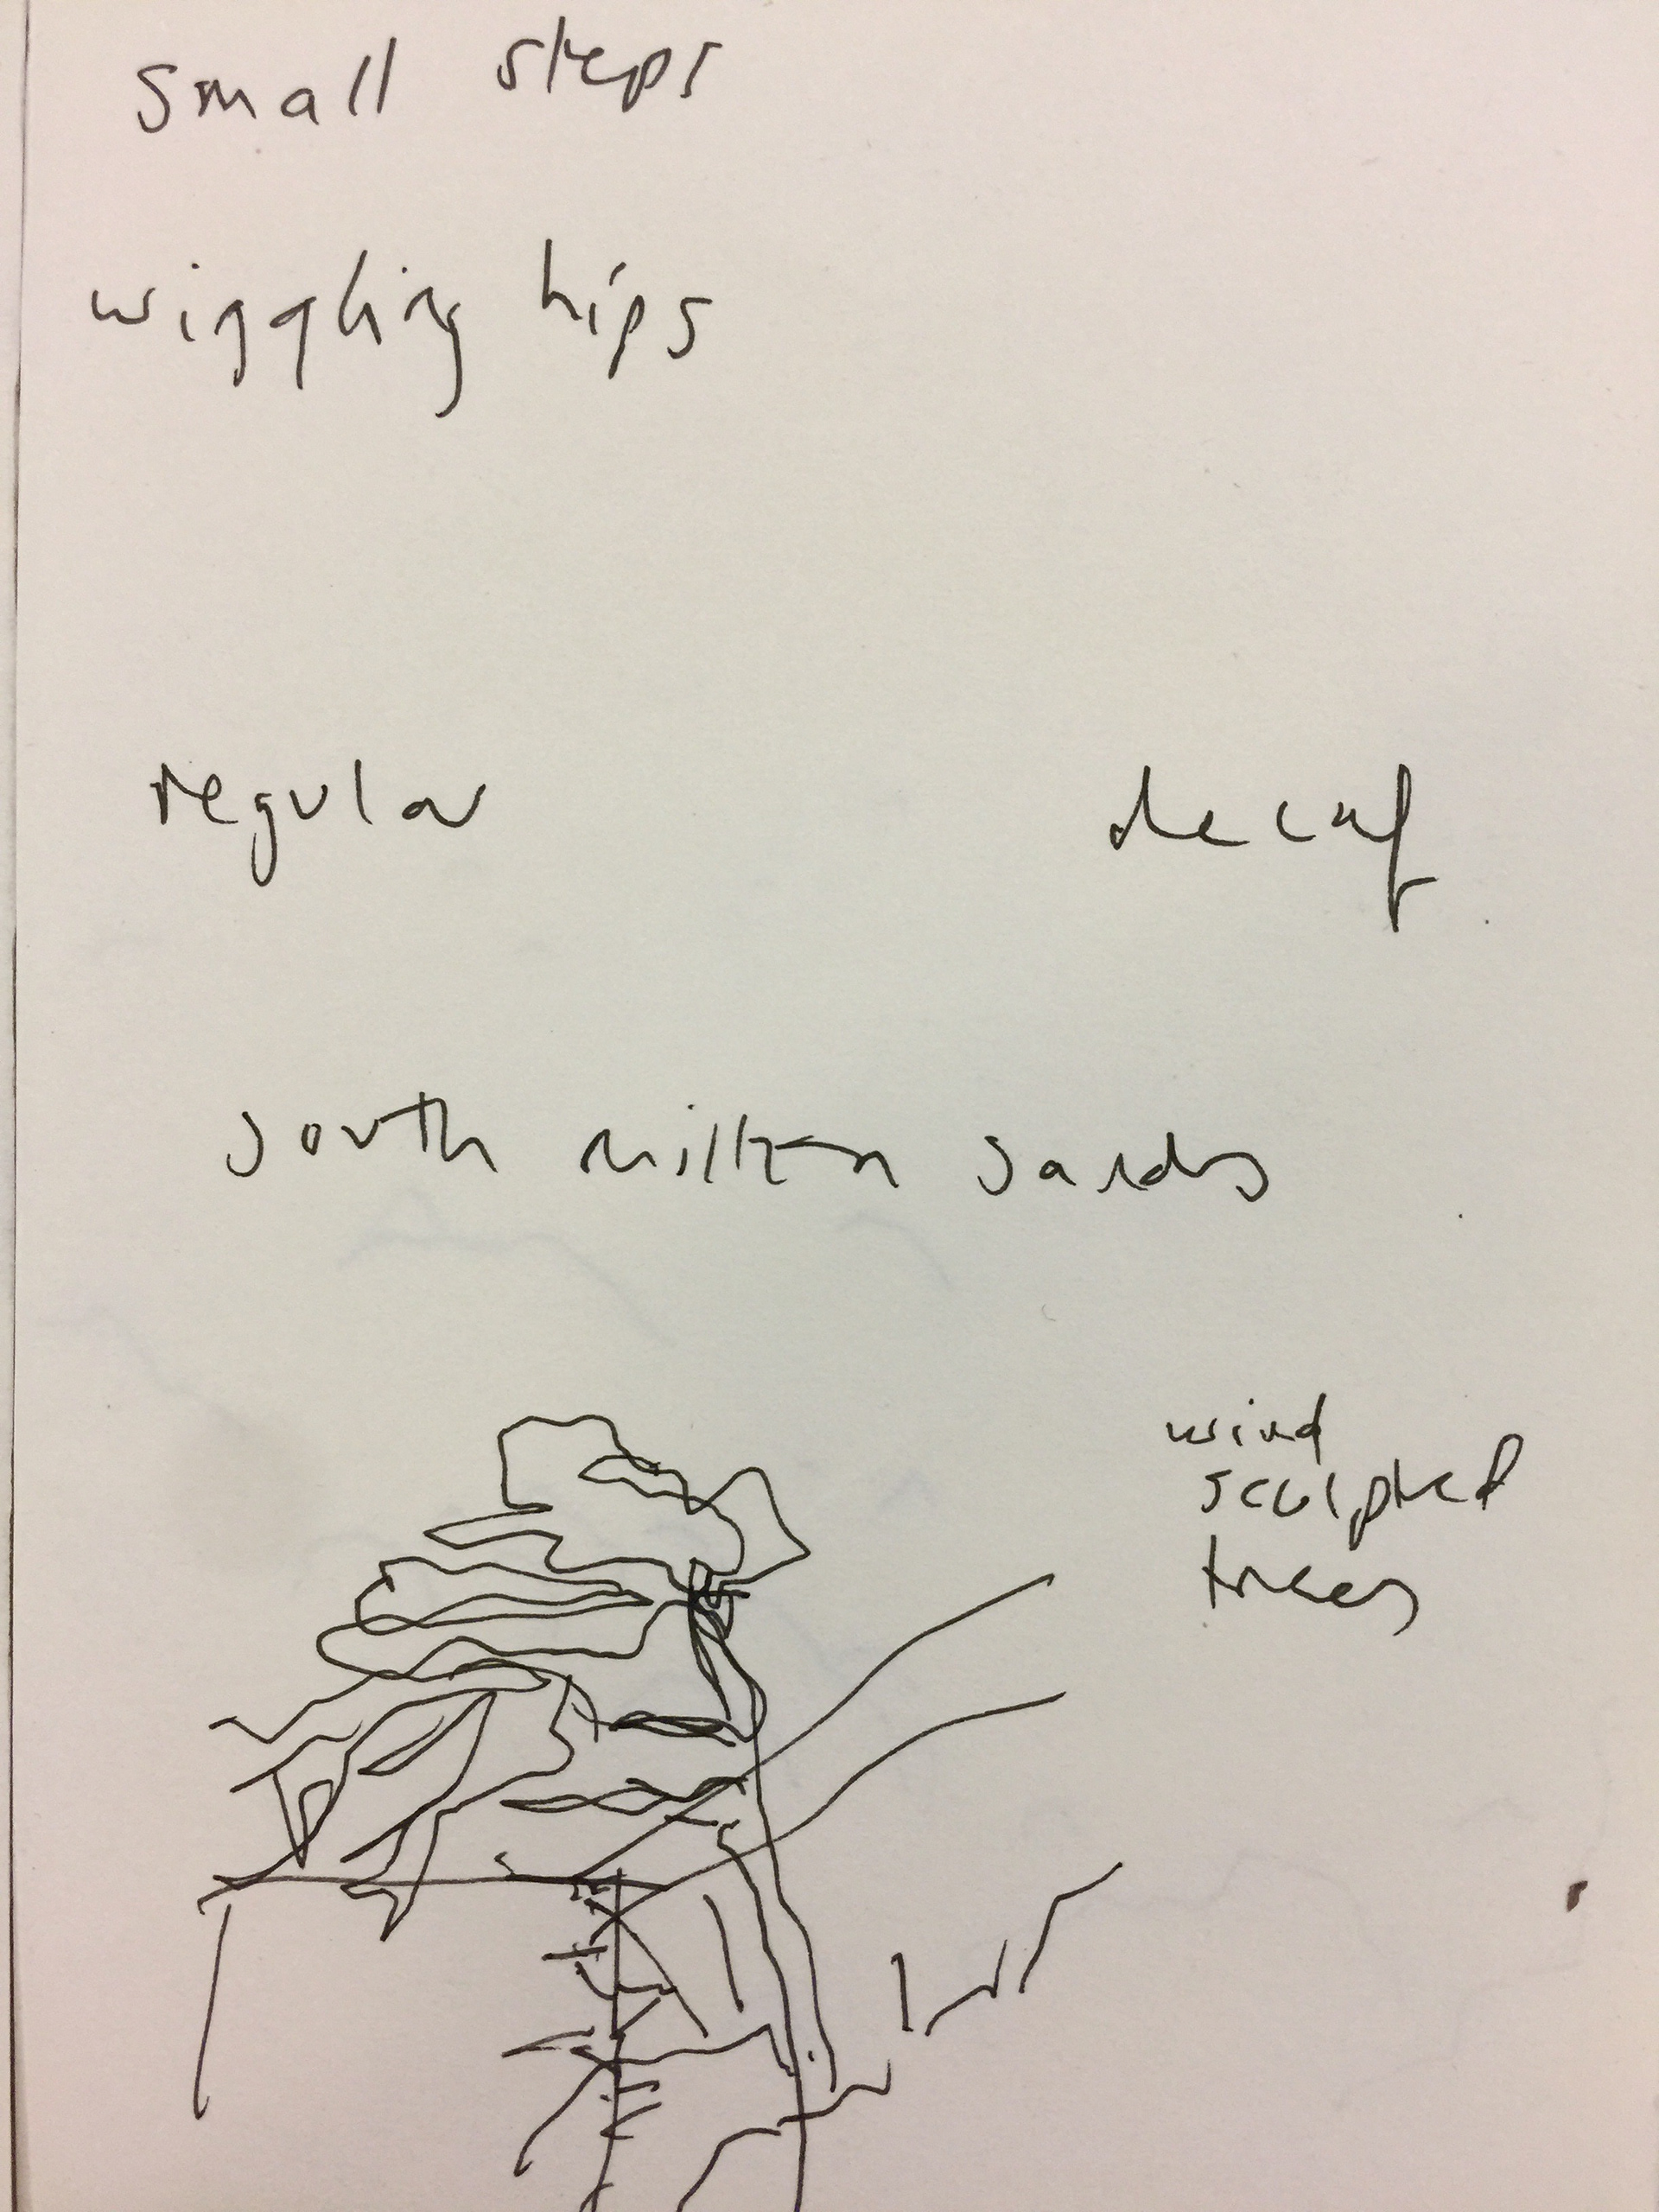 small steps
wiggling hips
regular decaf
south milton sands
wind
sculpted
trees